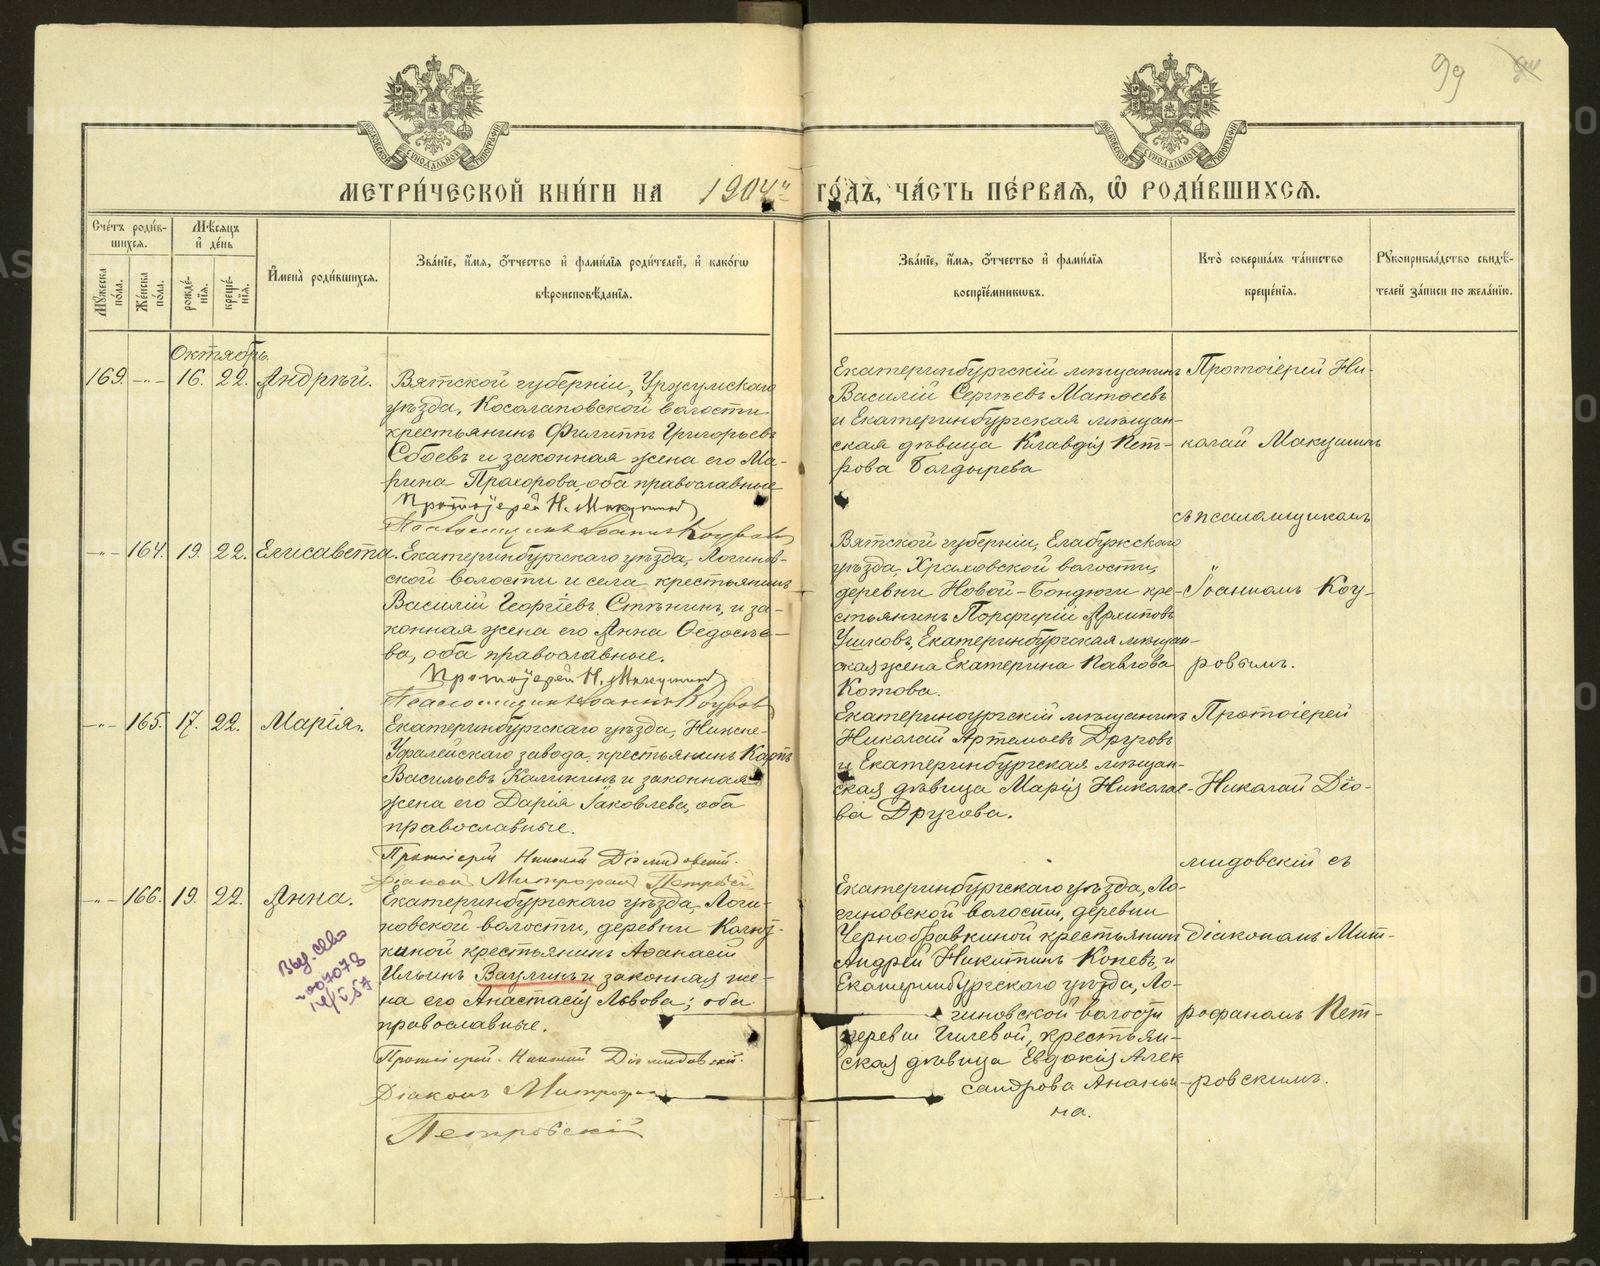 99
МОСКОВСКОЙ СѴНОДАЛЬНОЙ ТИПОГРАФІИ
МОСКОВСКОЙ СѴНОДАЛЬНОЙ ТИПОГРАФІИ
МЕТРИ́ЧЕСКОЙ КНИ́ГИ НА 1904й ГО́ДЪ, ЧА́СТЬ ПЕ́РВАЯ, Ѽ РОДИ́ВШИХСЯ.
Счетъ роди́в-
шихся.
Мѣсяцъ
и де́нь
Мꙋжеска по́ла.
Же́нска по́ла.
рожде́-
нїя.
креще́-
нїя.
Имена̀ роди́вшихся.
Зва́нїе, и́мя, о́тчество и фами́лїя роди́телей, и како́гѡ
вѣроисповѣ́данїя.
Зва́нїе, и́мя, о́тчество и фами́лїя
воспрїе́мникѡвъ.
Кто̀ соверша́лъ та́инство
креще́нїя.
Рꙋкоприкла́дство свидѣ́-
телей за́писи по жела́нїю.
Октябрь.
169. -"- 16. 22. Андрѣй.
Вятской губерніи, Уржумскаго
уѣзда, Косолаповской волости
крестьянинъ Филиппъ Григорьевъ
Сбоевъ и законная жена его Ма-
рина Прохорова, оба православные
Протоіерей Н. Макушинъ
Псаломщикъ Іоаннъ Коуровъ
Екатеринбургскій мѣщанинъ
Василій Сергѣевъ Матосевъ
и Екатеринбургская мѣщан-
ская дѣвица Клавдія Пет-
рова Болдырева
Протоіерей Ни-
колай Макушинъ
съ псаломщикомъ
Іоанномъ Коу-
ровымъ.
-"- 164. 19. 22. Елисавета.
Екатеринбургскаго уѣзда, Логинов-
ской волости и села крестьянинъ
Василій Георгіевъ Стѣнинъ, и за-
конная жена его Анна Ѳедосѣе-
ва, оба православные.
Протоіерей Н. Макушинъ
Псаломщикъ Іоаннъ Коуровъ
Вятской губерніи, Елабужскаго
уѣзда, Храховской волости,
деревни Новой-Бондюги кре-
стьянинъ Порфирій Архиповъ
Ушковъ, Екатеринбургская мѣщан-
ская жена Екатерина Павлова
Котова.
-"- 165. 17. 22. Марія.
Екатеринбургскаго уѣзда, Нижне-
Уфалейскаго завода, крестьянинъ Карпъ
Васильевъ Каликинъ и законная
жена его Дарія Іаковлева, оба
православные.
Протоіерей Николай Діомидовскій.
Діаконъ Митрофанъ Петровскій
Екатеринбургскій мѣщанинъ
Николай Артемьевъ Друговъ
и Екатеринбургская мѣщан-
ская дѣвица Марія Николае-
ва Другова.
Протоіерей
Николай Діо-
мидовскій съ
діакономъ Мит-
рофаномъ Пет-
ровскимъ.
-"- 166. 19. 22. Анна.
Екатеринбургскаго уѣзда, Логи-
новской волости, деревни Колют-
киной крестьянинъ Аѳанасій
Ильинъ Ваулинъ и законная же-
на его Анастасія Львова; оба
православные.
Протоіерей Николай Діомидовскій.
Діаконъ Митрофанъ
Петровскій
Екатеринбургскаго уѣзда, Ло-
гиновской волости, деревни
Чернобравкиной крестьянинъ
Андрей Никитинъ Коневъ, и
Екатеринбургскаго уѣзда, Ло-
гиновской волости
деревни Гилевой, крестьян-
ская дѣвица Евдокія Алек
сандрова Ананьи-
на.